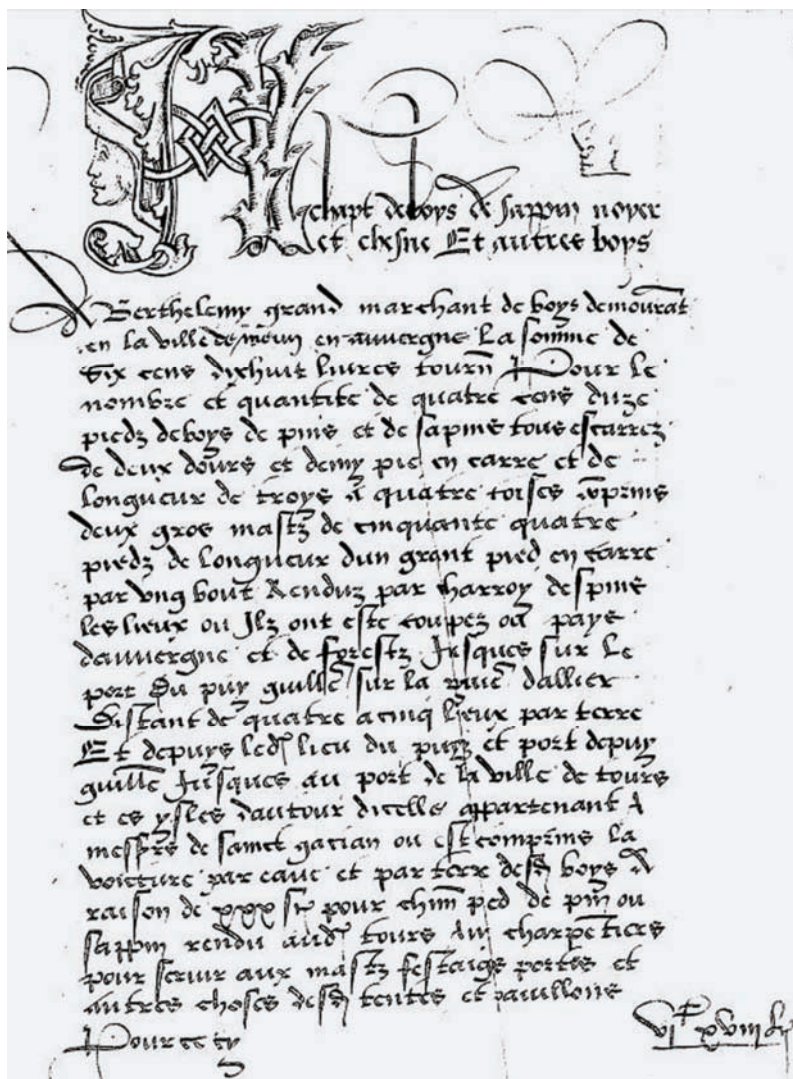 Achapt de boys de sappin noyer
et chesne Et autres boys
A Berthelemy grand marchant de boys demourāt
en la ville de en auvergne La somme de
Six cens dixhuit livres tourn̄ Pour le
nombre et quantite de quatre cens duze
piedz de boys de pins et de sapins tous escarrez
de deux dours et demy pie en carre et de
longueur de troys a quatre toises cōprins
deux gros mastz de cinquante quatre
piedz de longueur dun grant pied en carre
par ung bout Renduz par charroy despuis
les lieux ou Ilz ont este coupez ou pays
dauvergne et de forestz Jusques sur le
port Du puy guillē sur la rivie dallier
Distant de quatre a cinq lieux par terre
Et depuys led lieu du puy et port depuy
guillē Jusques au port de la ville de tours
et es ysles dautour dicelle appartenant A
messrs de sainct gacian ou est comprins la
voicture par eaue et par terre desd boys A
raison de xxx s pour chūn pied de pin ou
sappin rendu aud tours Au charpētiers
pour servir aux mastz festaige portes et
autres choses desd tentes et pavillons
Pour cecy
vi^c xviii l